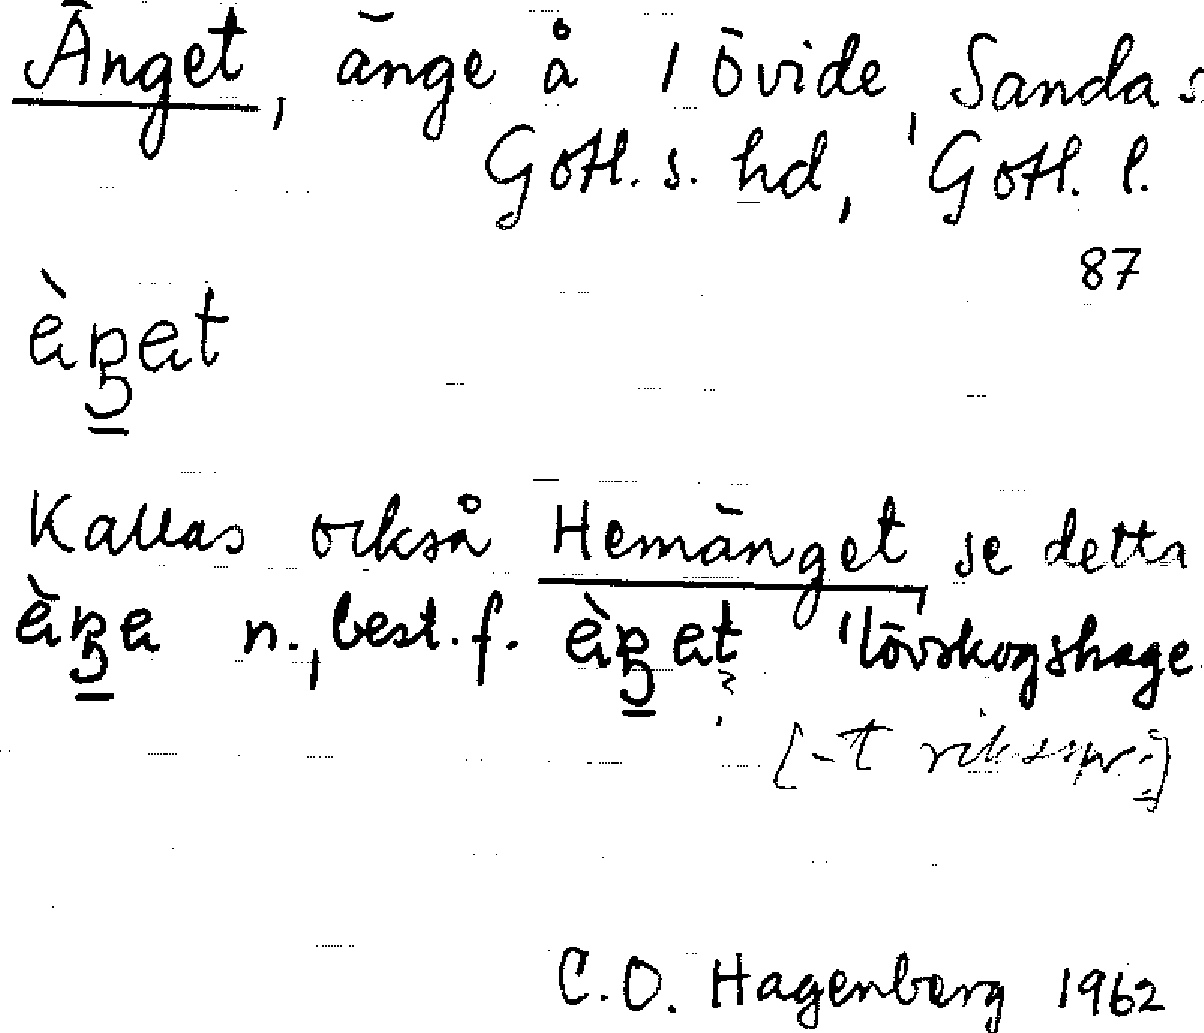 Änget, änge å 1 Övide, Sanda s
Gotl. s. hd, Gotl. l.
87
Kallas också Hemänget se detta
n., best. f. 'lövskogshage
[-t riksspr.]
C.O. Hagenberg 1962